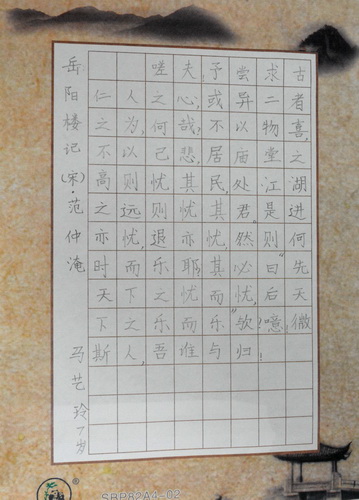 岳阳楼记(宋)·范仲淹
嗟夫,予尝求古
仁人之心,或异二者
之为,何哉?不以物喜,
不以己悲,居庙堂之
高则忧其民,处江湖
之远则忧其君。是进
亦忧,退亦忧,然则何
时而乐耶?其必曰“先
天下之忧而忧,后天
下之乐而乐”欤?噫!微
斯人,吾谁与归!
马艺玲7岁
SBP82A4-02